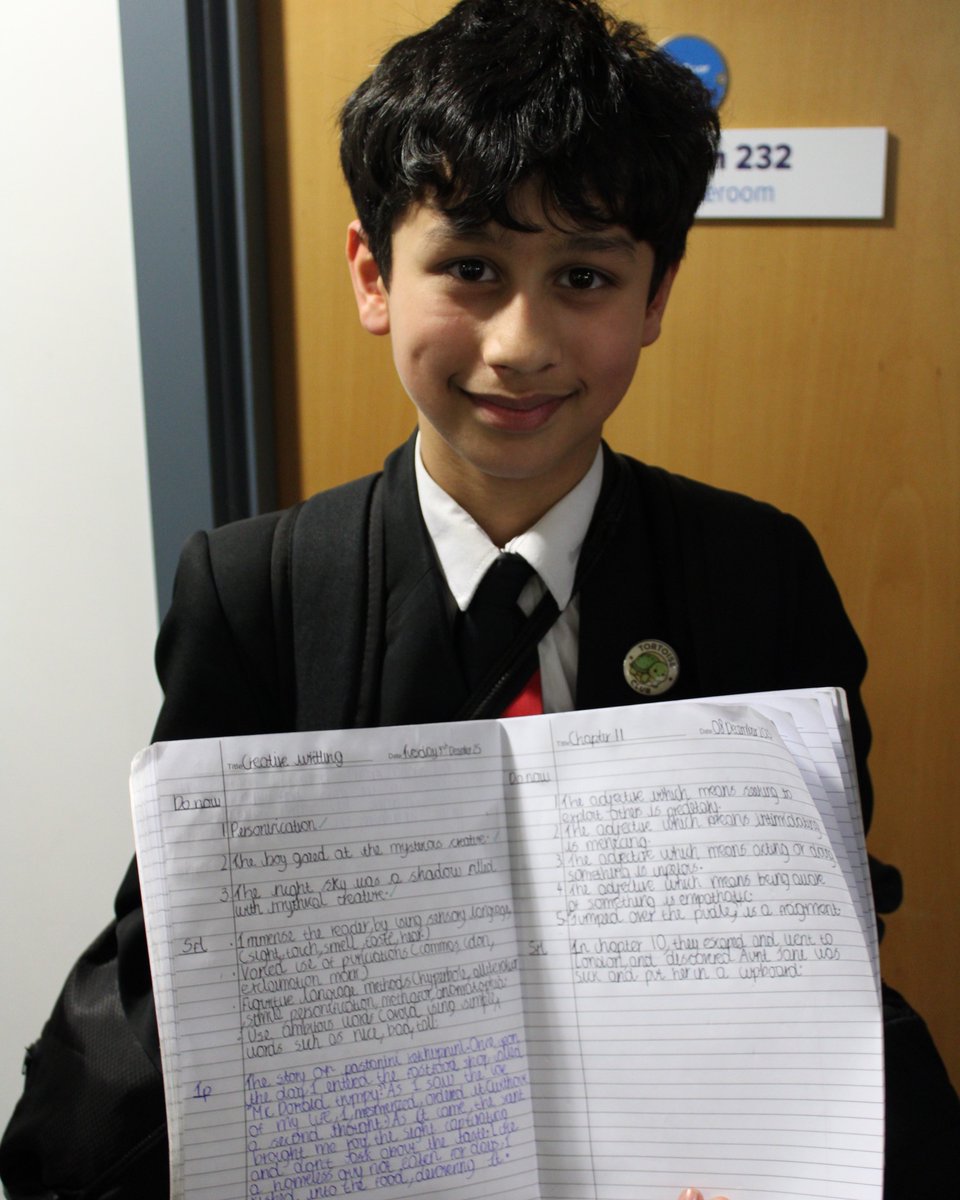 232
TORTOISE
CLUB
Title: Creative writting Date: Tuesday
Do now
1 Personification
2 The boy gazed at the mysterious creative.
3. The night sky was a shadow filled
with mythical creative.
SrI
. Immense the reader, by using sensory language
(sight, touch, smell, taste, hear)
. Varied use of punctuations (commas,
exclamation mark)
. Figurative language methods (hyperbole, alliteration
simile, personification, metaphor, onomatopoeia.
. Use ambitious words (avoid using simple,
words such as nice, bad, tall.
The story of
the day, I entered the shop called
"Mc Donald trumpy." As I saw the
of my life, I mesmerized, ordered it without
a second thought. As it came, the
brought me the sight captivating
and don't ask about the taste. Like
a homeless guy not eaten for days. I
into the food, devouring it.
Title: Chapter 11 Date: 08 December
Do now
1. The adjective which means seeking to
exploit others is predatory.
2. The adjective which means intimidating
is menacing.
3. The adjective which means acting or doing
something is
4. The adjective which means being aware
of something is empathetic.
5. Jumped over the is a fragment.
SrI
In chapter 10, they escaped and went to
London, and discovered Aunt Jane was
sick and put her in a cupboard.